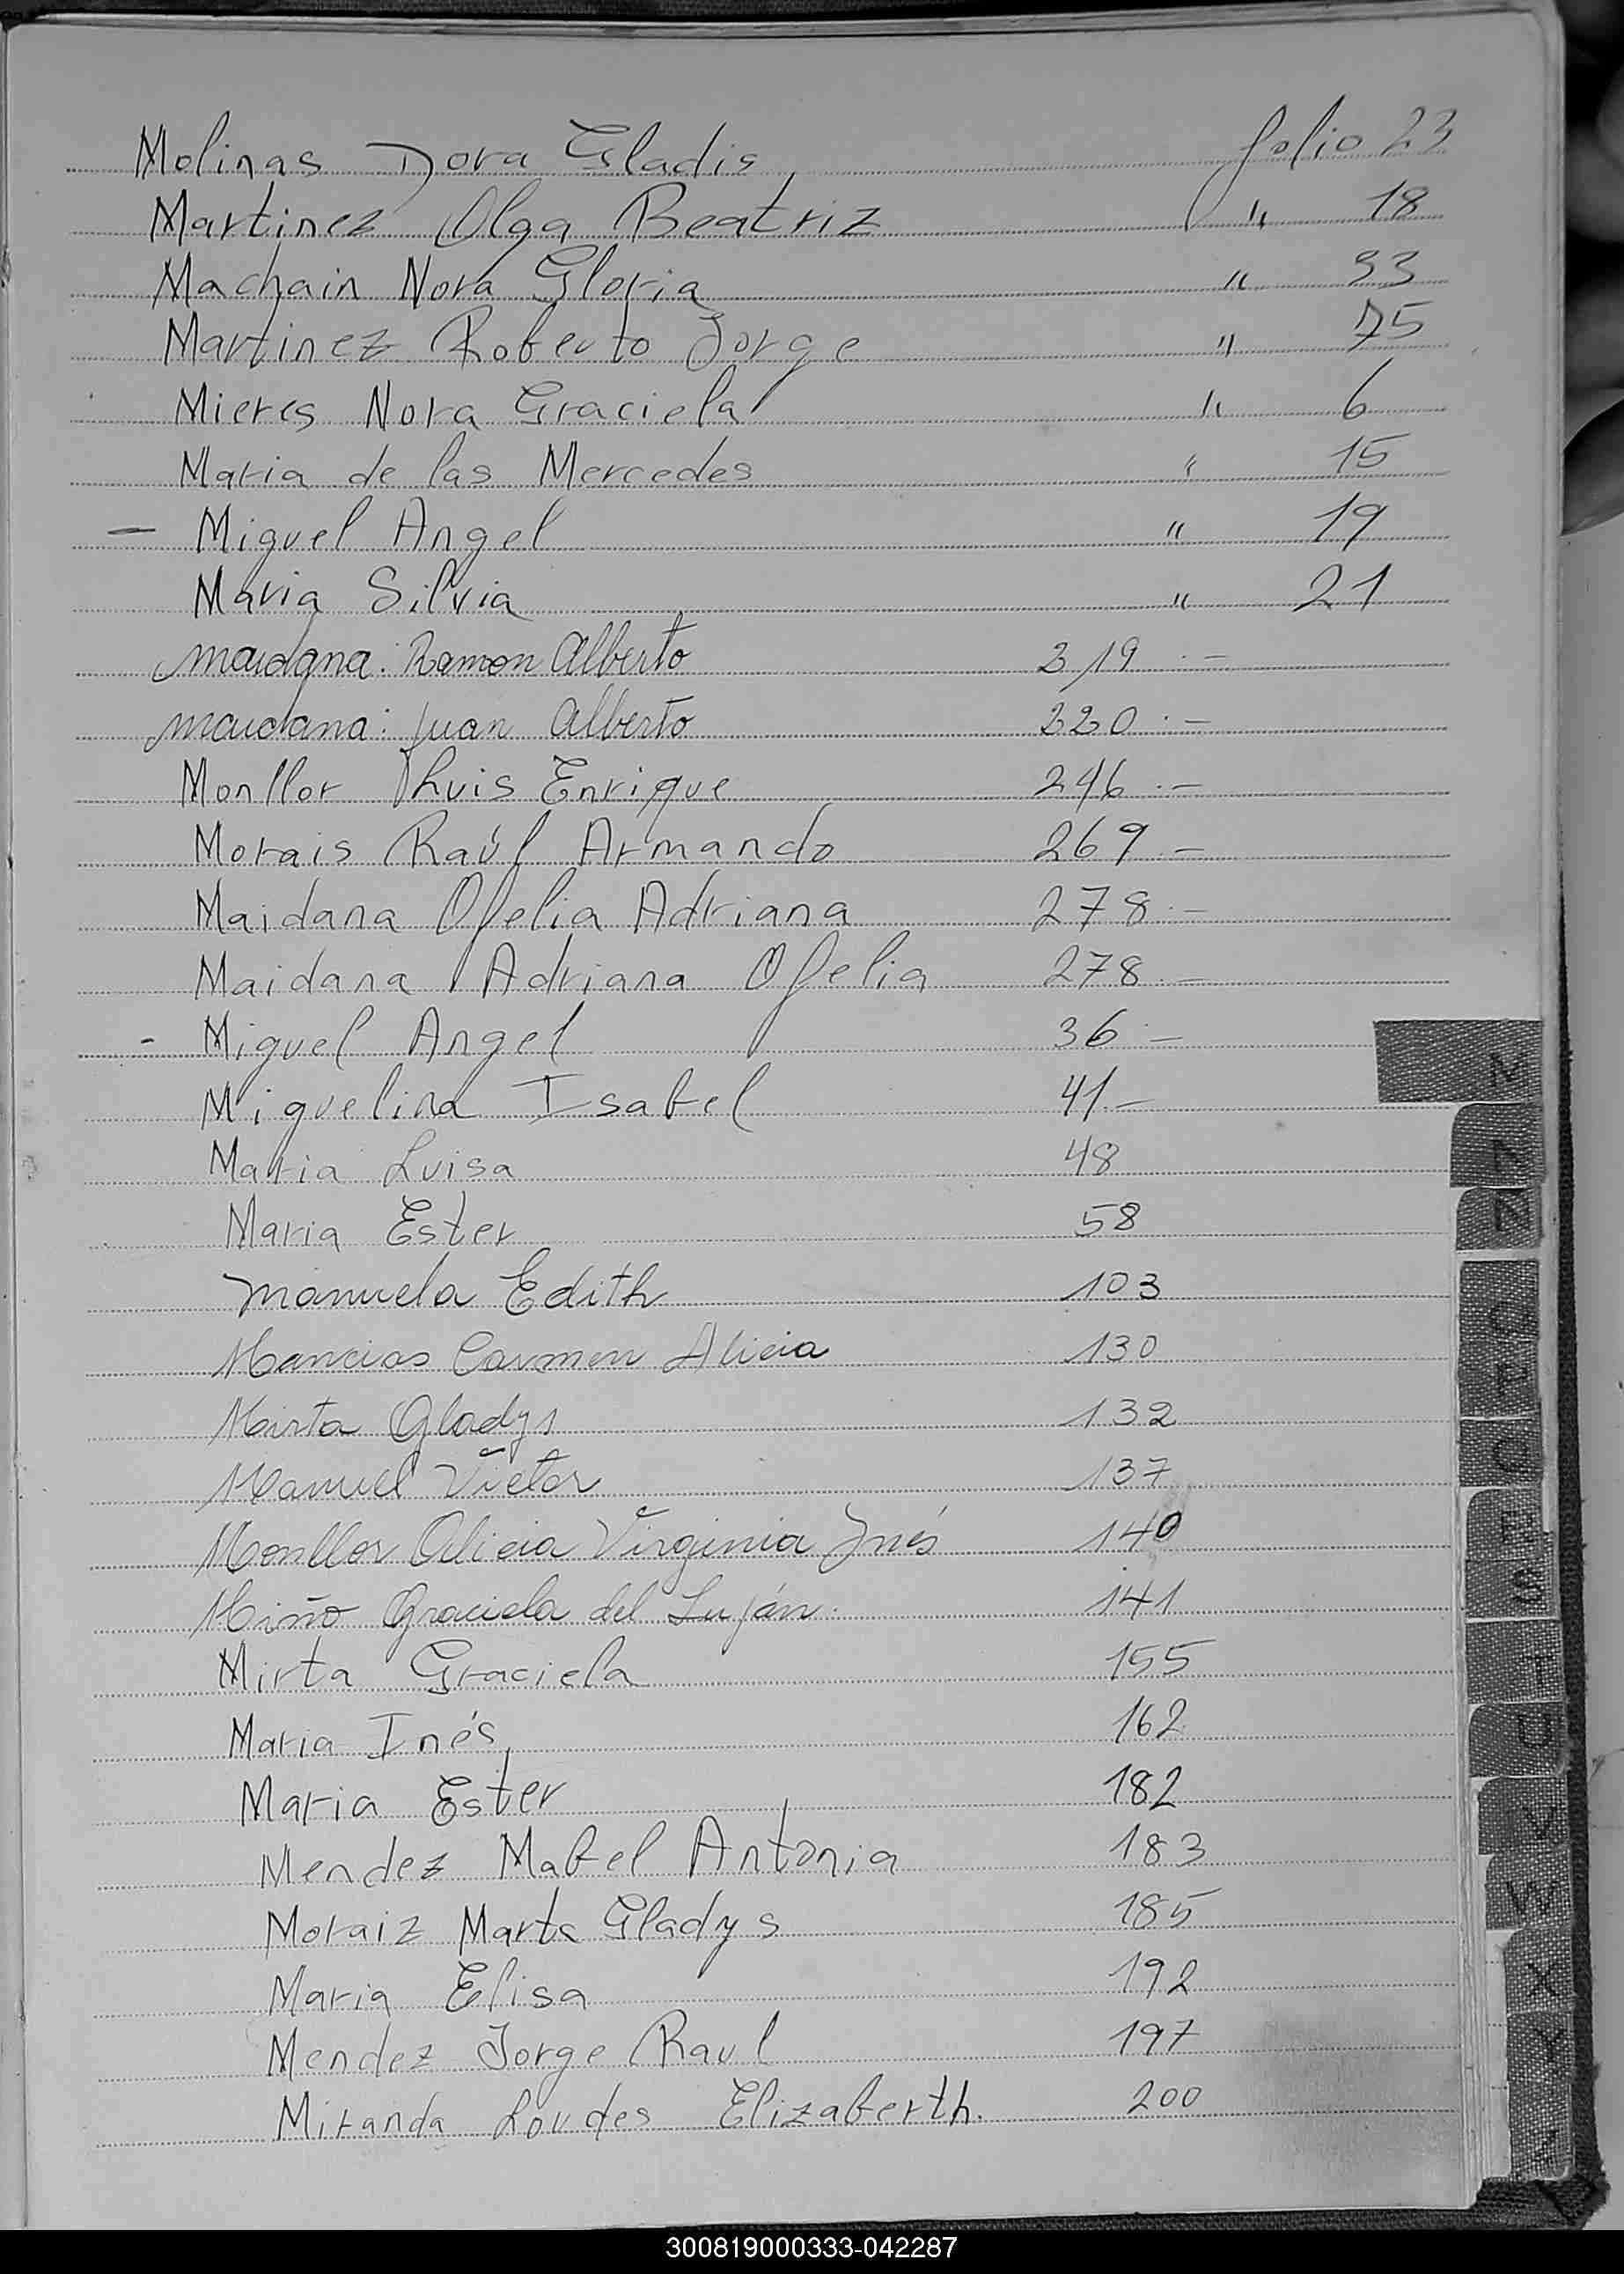 Molinas Dora Gladis folio 23
Martinez Olga Beatriz " 18
Machain Nora Gloria " 33
Martinez Roberto Jorge " 75
Mieres Nora Graciela " 6
Maria de las Mercedes " 15
— Miguel Angel " 19
Maria Silvia " 21
Maidana: Ramon Alberto 219 . —
Maidana: Juan Alberto 220 . —
Monllor Luis Enrique 246 . —
Morais Raúl Armando 269 . —
Maidana Ofelia Adriana 278 . —
Maidana Adriana Ofelia 278 . —
- Miguel Angel 36 —
Miguelina Isabel 41 . —
Maria Luisa 48
Maria Ester 58
Manuela Edith 103
Mancias Carmen Alicia 130
Mirta Gladys 132
Manuel Victor 137
Monllor Alicia Virginia Inés 140
Miño Graciela del Luján. 141
Mirta Graciela 155
Maria Inés 162
Maria Ester 182
Mendez Mabel Antonia 183
Moraiz Marta Gladys 185
Maria Elisa 192
Mendez Jorge Raul 197
Miranda Loudes Elizaberth. 200
M
N
Ñ
O
P
Q
R
S
T
U
V
W
X
Y
Z
300819000333-042287